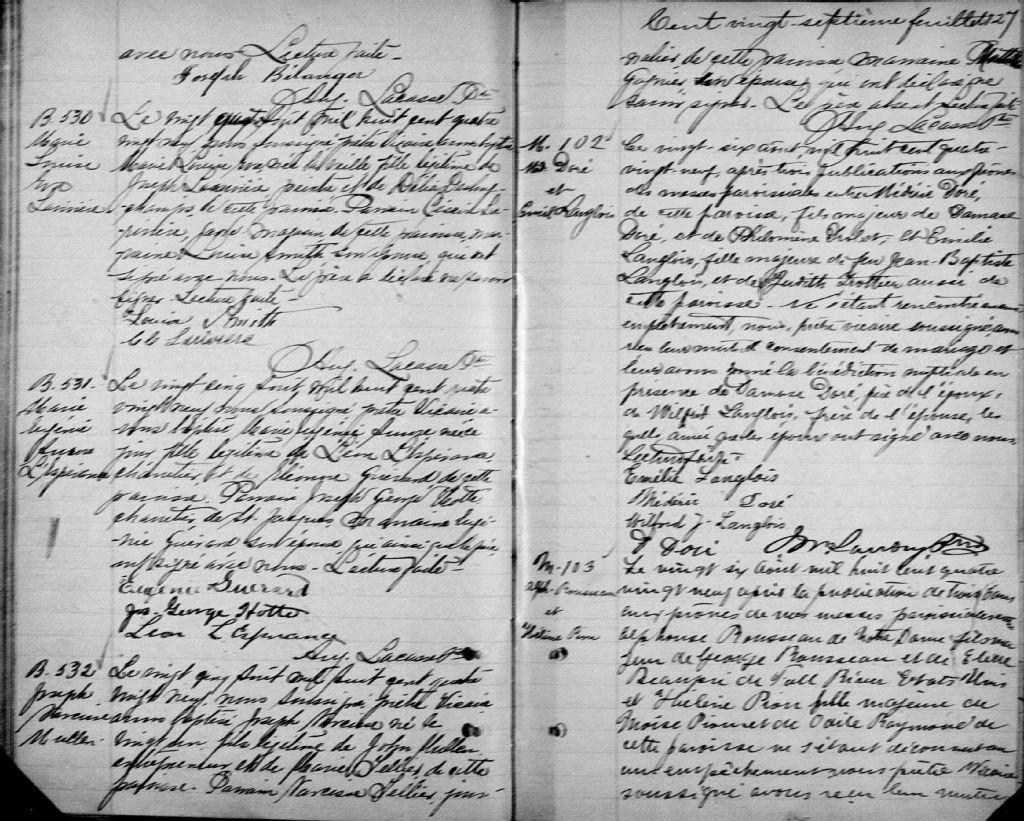 avec nous Lecture faite -
Joseph Bélanger
Aug. Lacasse Ptr
B. 530
Marie
Louise
Eva
Le vingt quatre août mil huit cent quatre
vingt neuf nous soussigné prêtre vicaire avons baptisé
Marie Louise Eva née la veille fille légitime de
Joseph peintre et de Délia Des
champs, de cette paroisse. Parrain
de cette paroisse, mar
raine Louise Smith son épouse, qui ont
signé avec nous. Le père a déclaré ne savoir
signer Lecture faite -
Louisa Smith
Aug. Lacasse Ptr
B. 531
Marie
Eugénie
Aurore
L'Espérance
Le vingt cinq août, mil huit cent quatre
vingt neuf nous soussigné prêtre Vicaire a-
vons baptisé Marie Eugénie Aurore née ce
jour fille légitime de Léon L'Espérance,
charretier, et de Guérard de cette
paroisse. Parrain Joseph George Hotte
charretier, de St. Jacques, Marraine Eugé-
nie Guérard son épouse qui ainsi que le père
ont signé avec nous - Lecture faite -
Eugenie Guerard
Jos. George Hotte
Leon L'Esperance
Aug. Lacasse Ptr
B. 532
Joseph
Narcisse
Mullen
Le vingt cinq août mil huit cent quatre
vingt neuf, nous soussigné prêtre Vicaire
avons baptisé Joseph Narcisse né le
vingt un, fils légitime de John Mullen,
entrepreneur et de Marie Tellier de cette
paroisse. Parrain Narcisse Tellier, jour-
Cent vingt-septième feuillet 127
nalier de cette paroisse Marraine
Gagnier son épouse, qui ont déclaré ne
savoir signer. Le père absent Lecture faite
Aug Lacasse Ptr
M. 102
Doré
et
Emélie Langlois
Le vingt-six août, mil huit cent quatre-
vingt-neuf, après trois publications aux prônes
des messes paroissiales entre Médéric Doré,
de cette paroisse, fils majeur de Damase
Doré, et de Philomène Et Emélie
Langlois, fille majeure de feu Jean-Baptiste
Langlois, et de Judith Trottier aussi de
cette paroisse - ne s'étant rencontré aucun
empêchement, nous, prêtre vicaire soussigné avons
reçu leur mutuel consentement de mariage et
leur avons donné la bénédiction nuptiale en
présence de Damase Doré, père de l'époux,
de Wilfrid Langlois, frère de l'épouse, les
quels, ainsi que les époux ont signé avec nous.
Lecture faite -
Emélie Langlois
Médéric Doré
Wilford J. Langlois
D Doré
M-103
Alph. Rousseau
et
Hélène Pion
Le vingt six Août mil huit cent quatre
vingt neuf après la publication de trois bans
aux prônes de nos messes paroissiales
Alphonse Rousseau de Notre Dame fils ma
jeur de George Rousseau et de
Beaupré de Fall River Etats Unis
et Hélène Pion fille majeure de
Moïse Pion et de Odile Raymond de
cette paroisse ne s'étant découvert au
cun empêchement nous prêtre Vicaire
soussigné avons reçu leur mutuel